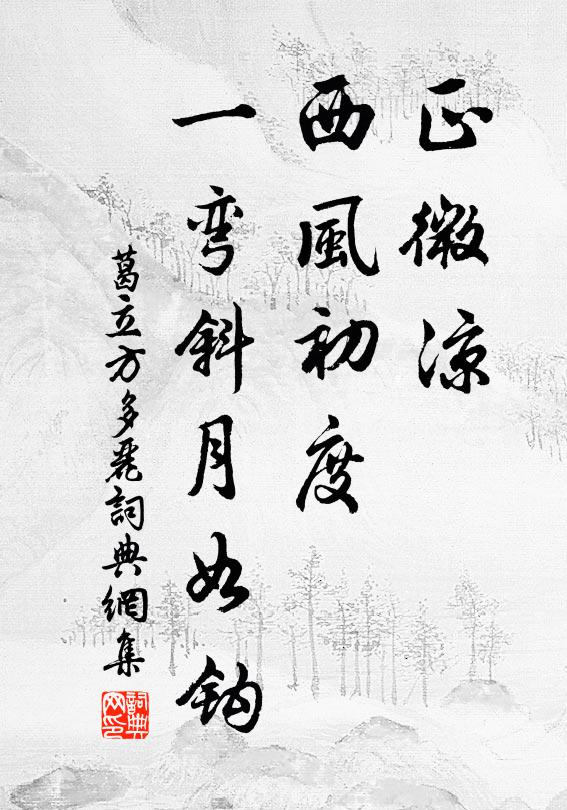 正微凉
西風初度
一弯斜月如钩
葛立方多麗詞典網集
詞典网印